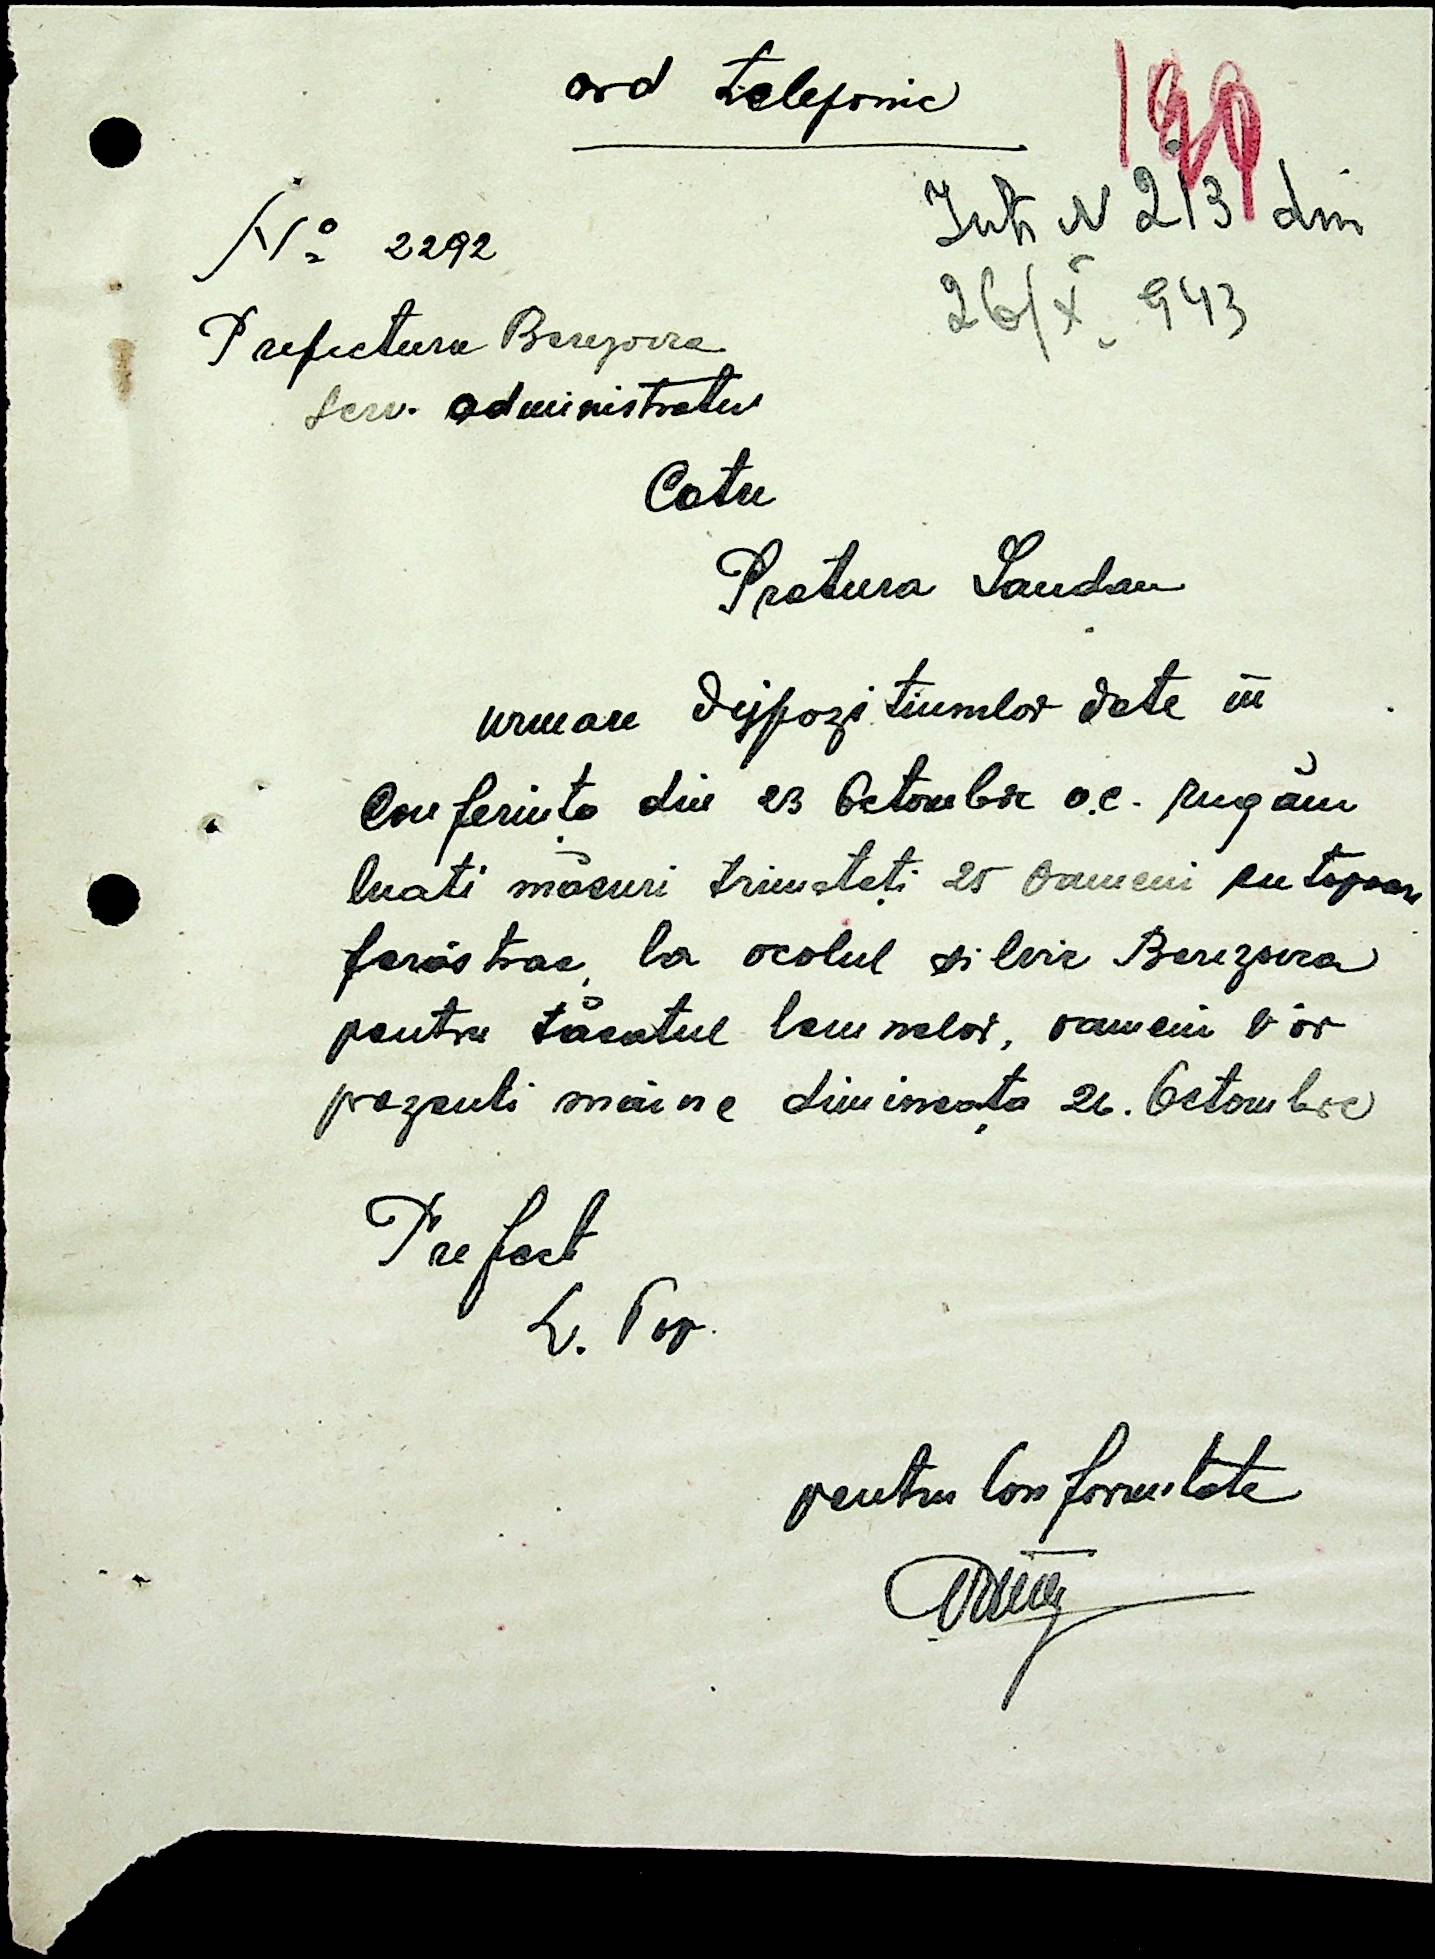 ord telefonic
No 2292
N 213 din
26/X 943
Prefectura Berezovca
Serv. administrativ
Catre
Pretura Landau
urmare dispozitiunilor date in
Conferinţa din 23 Octombrie a.c. rugăm
luati măsuri trimeteţi 25 oameni cu topoare
ferăstrae, la ocolul silvic Berezovca
pentru tăeatul lemnelor, oameni vor
prezenti mâine dimineaţa 26. Octombrie
Prefect
L. Pop.
pentru Conformitate